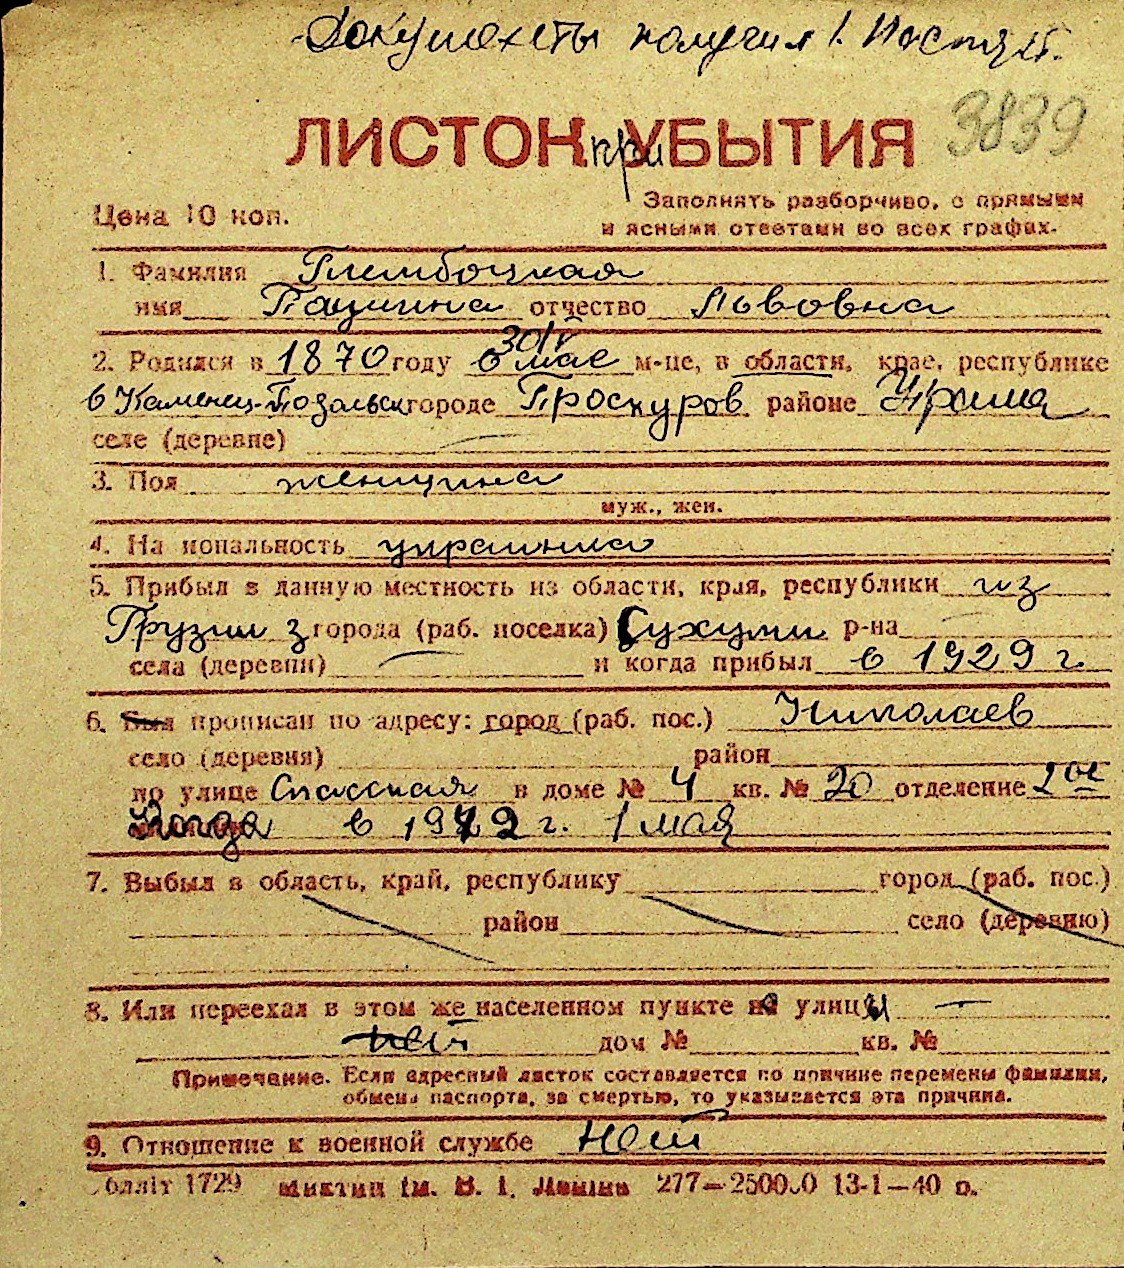 Документы получил 1. Поступ.
3839
ЛИСТОК приУБЫТИЯ
Цена 10 коп.
Заполнять разборчиво, с прямыми
и ясными ответами во всех графах.
1. Фамилия Глембоцкая
имя отчество Львовна
30/V
2. Родился в 1870 году в мае м-це, в области, крае, республике
в Каменец-Подольск городе Проскуров районе
селе (деревне)
3. Пол женщина
муж., жен.
4. Национальность украинка
5. Прибыл в данную местность из области, края, республики из
Грузии з города (раб. поселка) Сухуми р-на
села (деревни) и когда прибыл в 1929 г.
6. Был прописан по адресу: город (раб. пос.) Николаев
село (деревня) район
по улице Спасская в доме № 4 кв. № 20 отделение 2ое
Когда в 1942 г. 1 мая
7. Выбыл в область, край, республику город (раб. пос.)
район село (деревню)
8. Или переехал в этом же населенном пункте на улицы —
нет дом № кв. №
Примечание. Если адресный листок составляется по причине перемены фамилии,
обмена паспорта, за смертью, то указывается эта причина.
9. Отношение к военной службе Нет
Обліт 1729 ім. В. І. Леніна 277—250000 13-1—40 р.